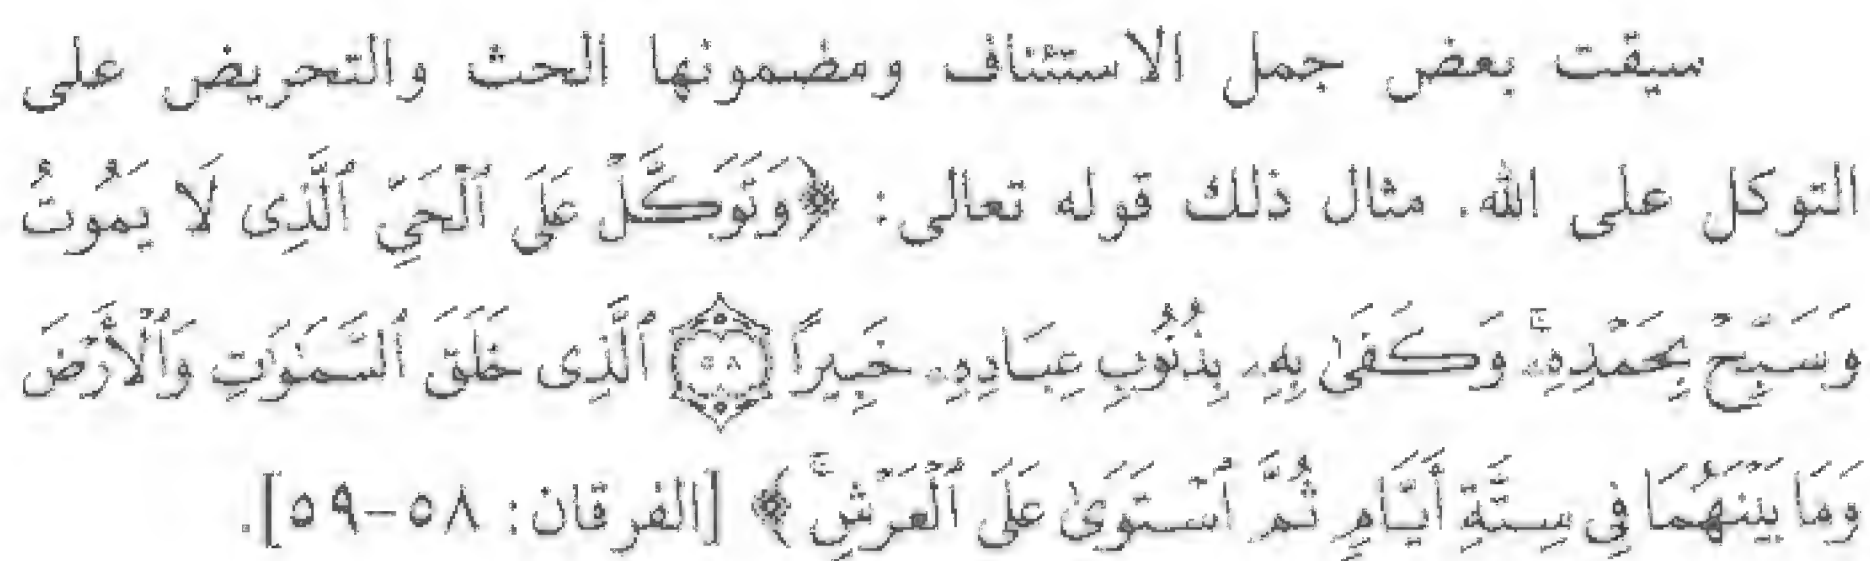 سيقت بعض جمل الاستئناف ومضمونها الحث والتحريض على
التوكل على الله. مثال ذلك قوله تعالى: ﴿وَتَوَكَّلْ عَلَى ٱلْحَيِّ ٱلَّذِى لَا يَمُوتُ
وَسَبِّحْ بِحَمْدِهِۦۚ وَكَفَىٰ بِهِۦ بِذُنُوبِ عِبَادِهِۦ خَبِيرًا ۝٥٨ ٱلَّذِى خَلَقَ ٱلسَّمَٰوَٰتِ وَٱلْأَرْضَ
وَمَا بَيْنَهُمَا فِى سِتَّةِ أَيَّامٍ ثُمَّ ٱسْتَوَىٰ عَلَى ٱلْعَرْشِۚ﴾ [الفرقان: ٥٨-٥٩].